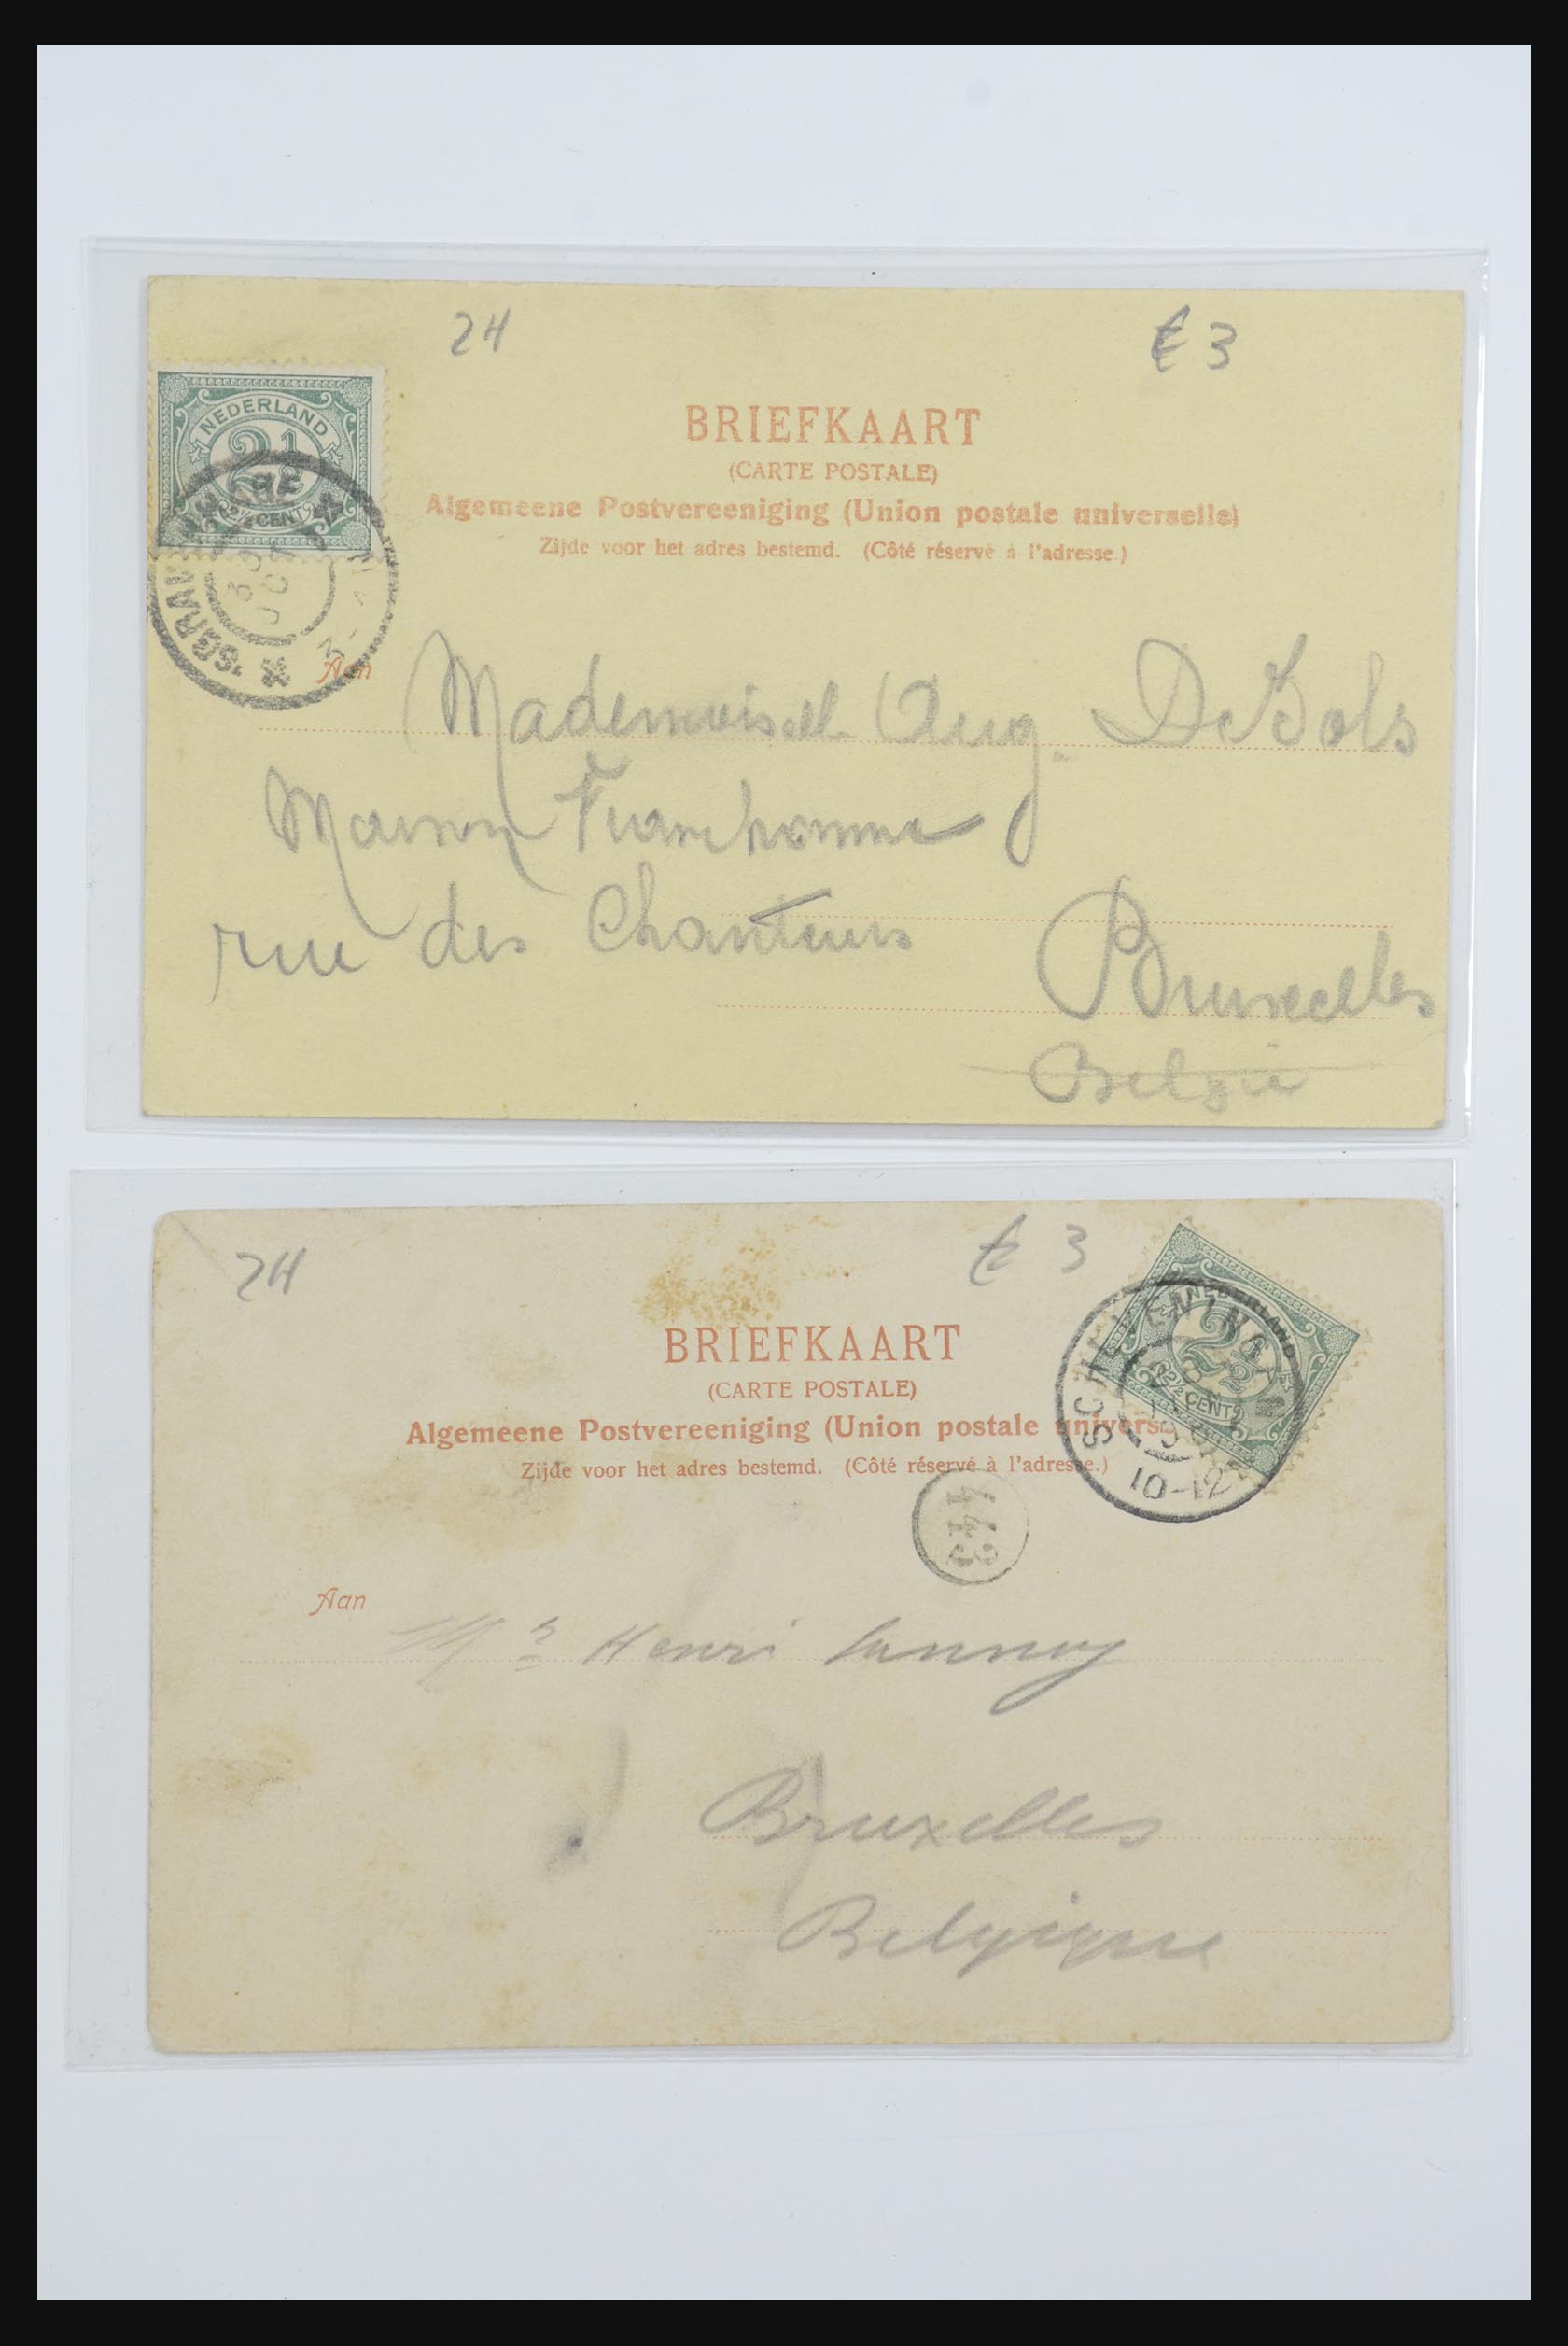 24
€ 3
NEDERLAND
2½
2½ CENT
BRIEFKAART
(CARTE POSTALE)
Algemeene Postvereeniging (Union postale universelle)
Zijde voor het adres bestemd. (Côté réservé à l'adresse.)
Aan
Mademoisell Aug. De Bols
Maison
rue des Chanteurs
Bruxelles
Belgie
24
€ 3
NEDERLAND
2½
2½ CENT
SCHEVENING
10-12
BRIEFKAART
(CARTE POSTALE)
Algemeene Postvereeniging (Union postale univers
Zijde voor het adres bestemd. (Côté réservé à l'adresse.)
443
Aan
Mr Henri Lannoy
Bruxelles
Belgique